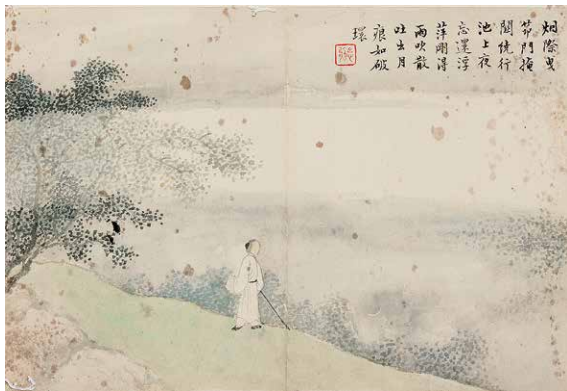 烟際曳
筇門掩
関繞行
池上夜
忘還浮
萍剛得
雨吹散
吐出月
痕如破
環